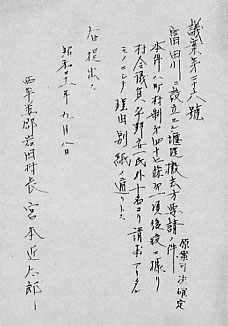 議案第三十八號
富田川ニ設立セル堰堤撤去方要請ノ件
原案可決確定
本件ハ町村制第四十七條第一項後段ニ據リ
村会議員
外十名ヨリ請求アリタル
モノニシテ理由別紙ノ通リトス
右提出ス
昭和十八年九月八日
西牟婁郡岩田村長 宮本近太郎